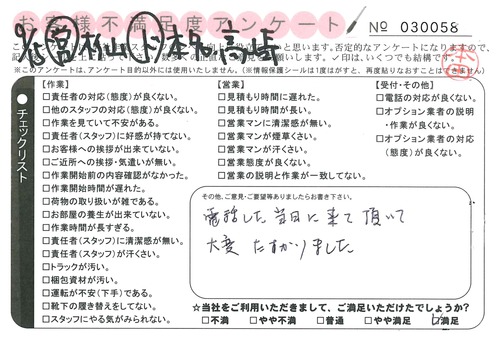 お客様不満足度アンケート
№ 030058
※このアンケートは、アンケート目的以外には使用いたしません。(※情報保護シールは1度はがすと、再度貼りなおすことはできません)
チェックリスト
【作業】
□責任者の対応(態度)が良くない。
□他のスタッフの対応(態度)が良くない。
□作業を見ていて不安がある。
□責任者(スタッフ)に好感が持てない。
□お客様への挨拶が出来ていない。
□ご近所への挨拶・気遣いが無い。
□作業開始前の内容確認がなかった。
□作業開始時間が遅れた。
□荷物の取り扱いが雑である。
□お部屋の養生が出来ていない。
□作業時間が長すぎる。
□責任者(スタッフ)に清潔感が無い。
□責任者(スタッフ)が汗くさい。
□トラックが汚い。
□梱包資材が汚い。
□運転が不安(下手)である。
□靴下の履き替えをしてない。
□スタッフにやる気がみられない。
【営業】
□見積もり時間に遅れた。
□見積もり時間が長い。
□営業マンに清潔感が無い。
□営業マンが煙草くさい。
□営業マンが汗くさい。
□営業態度が良くない。
□営業の説明と作業が一致してない。
【受付・その他】
□電話の対応が良くない。
□オプション業者の説明・作業が良くない。
□オプション業者の対応(態度)が良くない。
その他、ご意見・ご要望等ありましたらお書き下さい。
電話した当日に来て頂いて
大変 たすかりました
☆当社をご利用いただきまして、ご満足いただけたでしょうか?
□不満 □やや不満 □普通 □やや満足 ☑満足